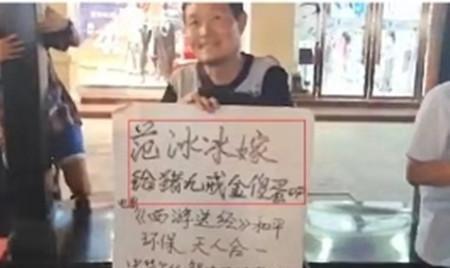 范冰冰嫁
给猪九戒金俊墨吧
电影《西游送经》和平
环保 天人合一